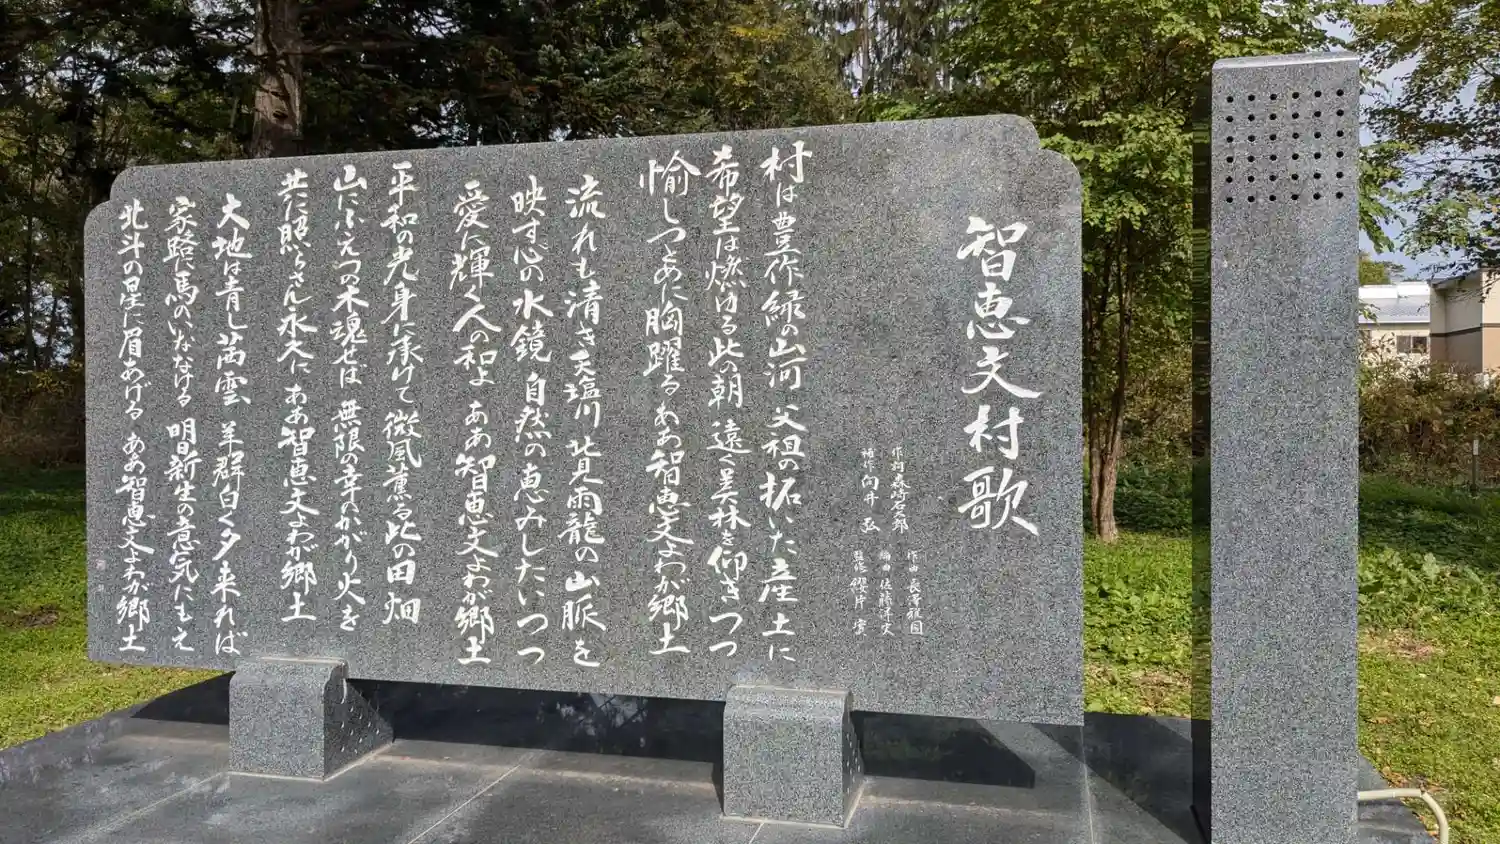 智恵文村歌
作詞 森崎石太郎
補作 向井
作曲 長澤
編曲 佐藤洋史
監修 纓片 實
村は豊作緑の山河 父祖の拓いた産土に
希望は燃ゆる此の朝 遠く美林を仰ぎつつ
愉しつとめに胸躍る ああ智恵文よわが郷土
流れも清き天塩川 北見雨龍の山脈を
映す心の水鏡 自然の恵みしたいつつ
愛に輝く人の和よ ああ智恵文よわが郷土
平和の光身に承けて 微風薫る此の田畑
山にふえつの木魂せば 無限の幸のかがり火き
共に照らさん永久に ああ智恵文よわが郷土
大地は青し茜雲 羊群白く夕来れば
家路に馬のいななける 明日新生の意気にもえ
北斗の星に眉あげる ああ智恵文よわが郷土